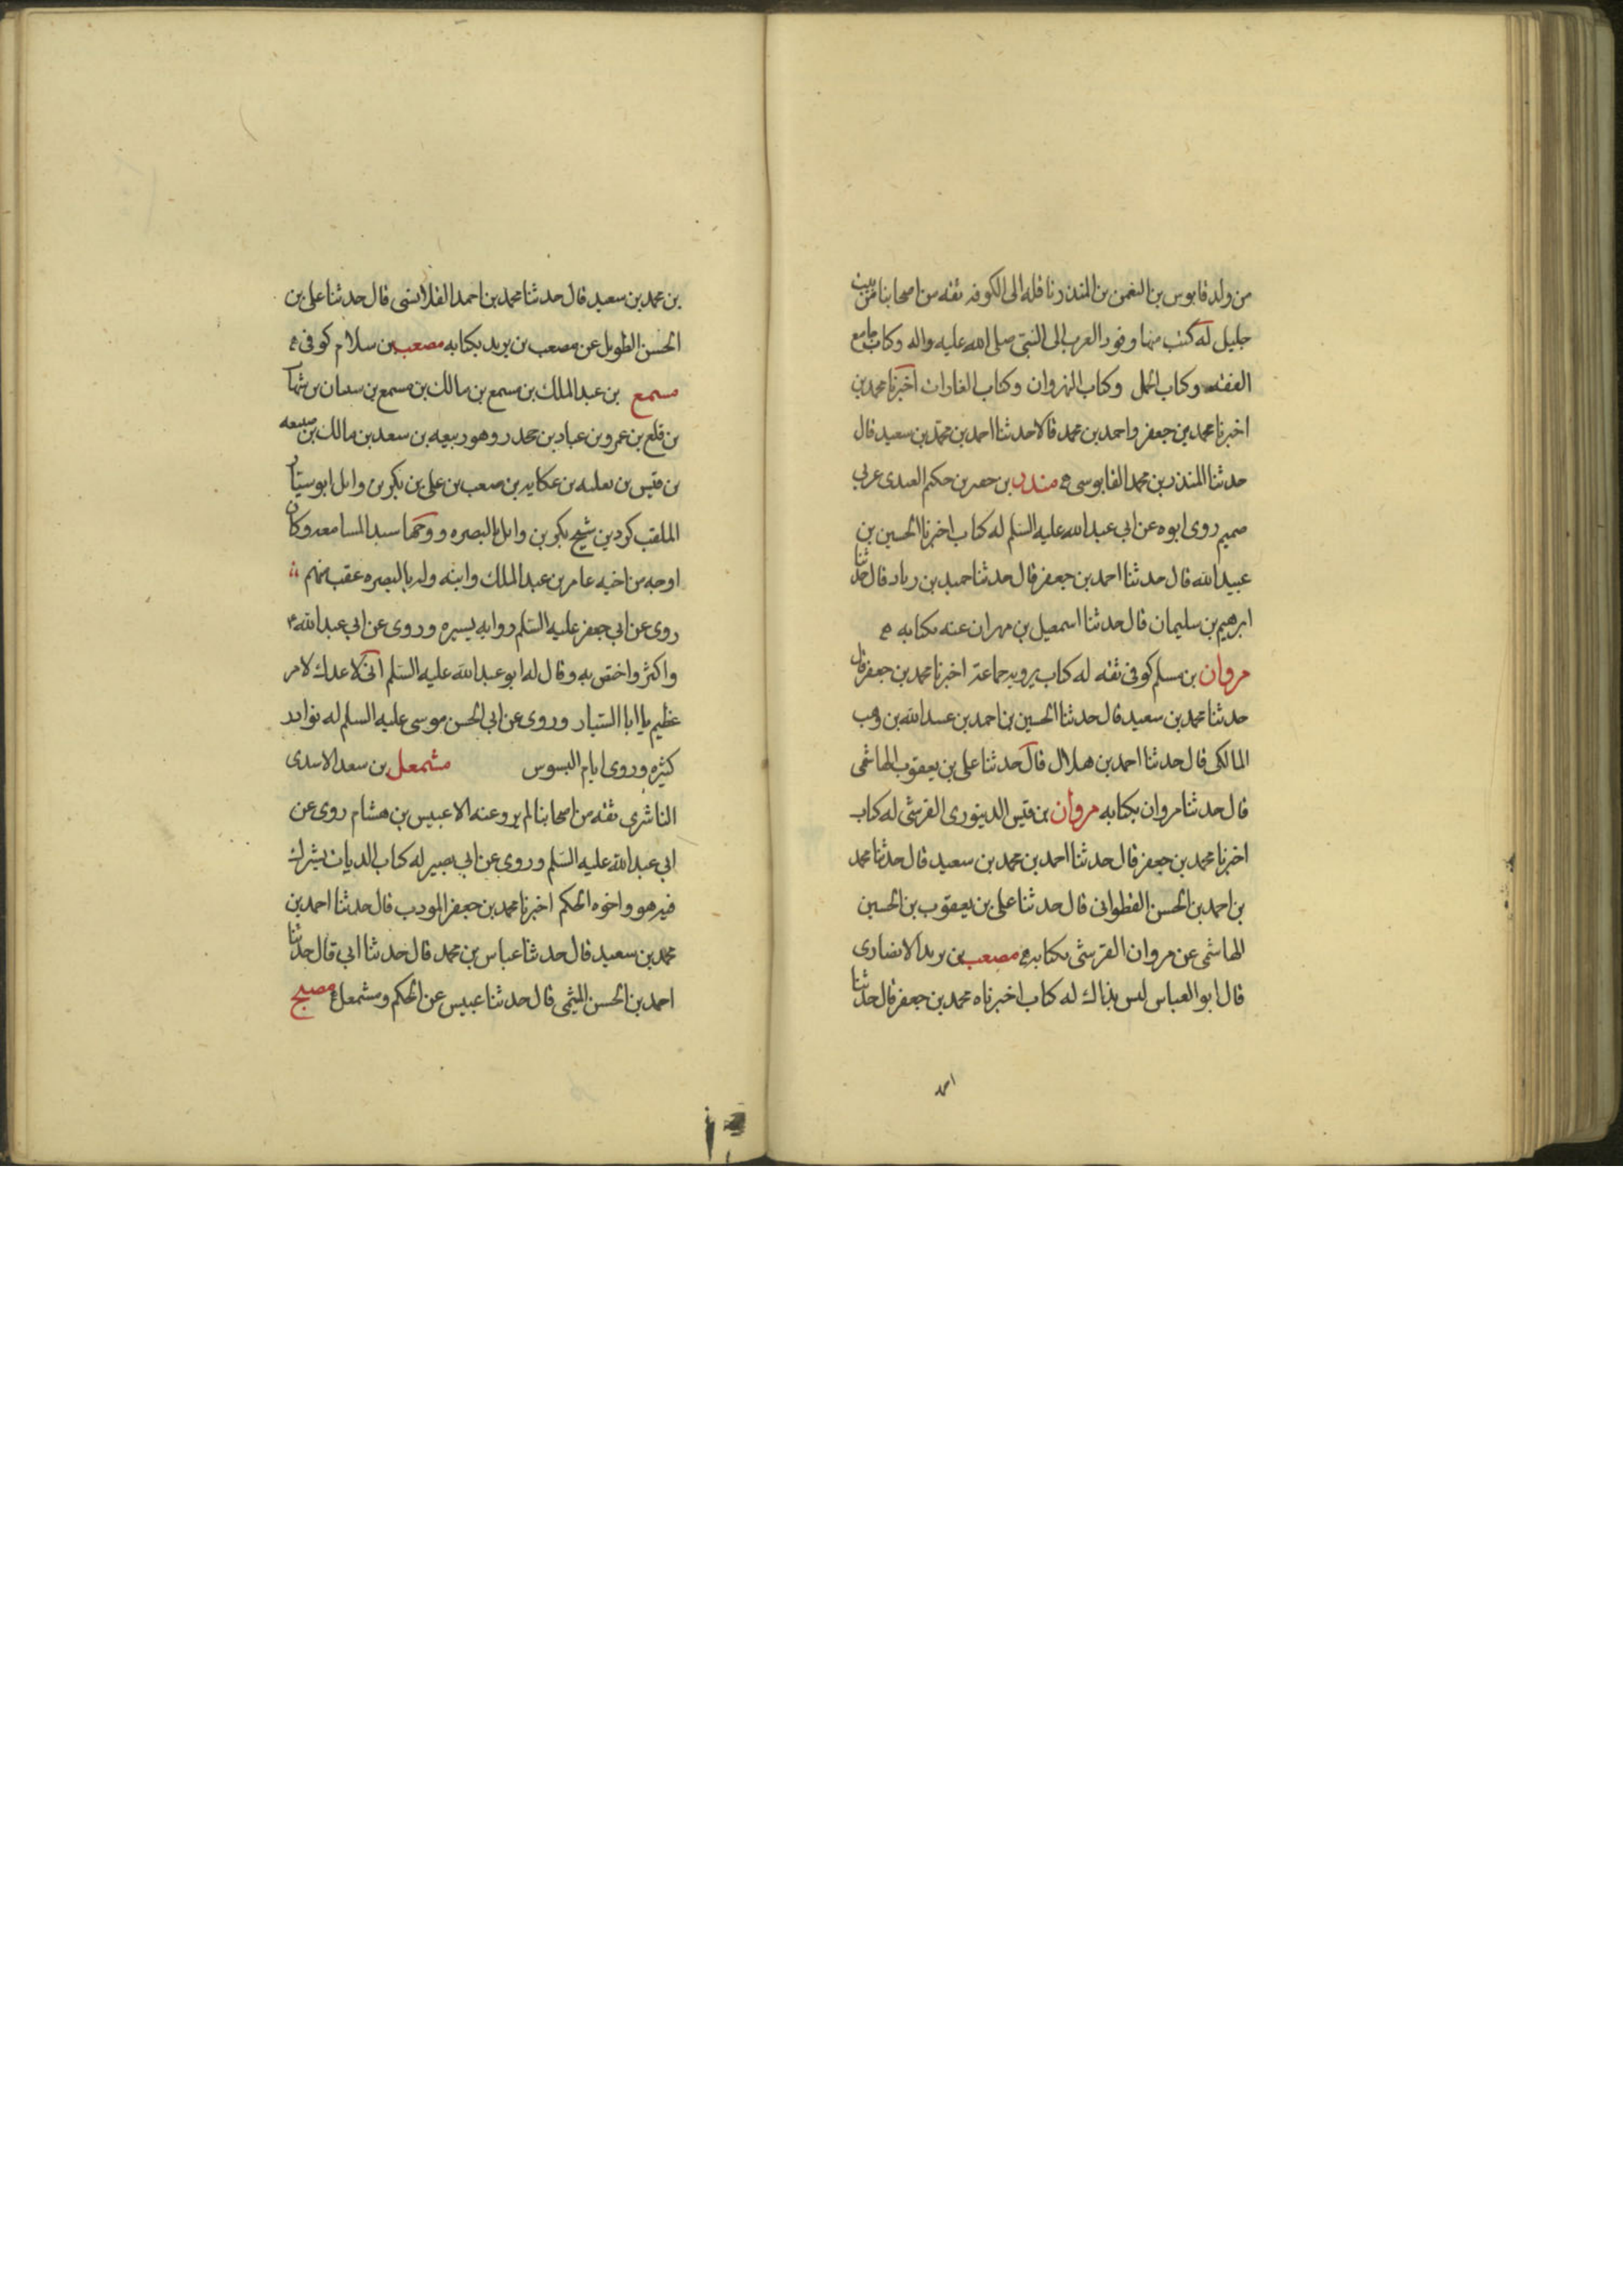 من ولد قابوس بن النعمن بن المنذر ناقله الى الكوفه ثقه من اصحابنا من بيت
جليل له كتب منها وفود العرب الى النبي صلى الله عليه واله وكتاب جامع
الفقه وكتاب الجمل وكتاب النهروان وكتاب الغارات اخبرنا محمد بن
اخبرنا محمد بن جعفر واحمد بن محمد قالا حدثنا احمد بن محمد بن سعيد قال
حدثنا المنذر بن محمد القابوسى مندر بن حفر بن حكيم العبدى عربى
صميم روى ابوه عن ابي عبد الله عليه السلم له كتاب اخبرنا الحسين بن
عبيد الله قال حدثنا احمد بن جعفر قال حدثنا حميد بن رياد قال حدثنا
ابرهيم بن سليمان قال حدثنا اسمعيل بن مهران عنه بكتابه
مروان بن مسلم كوفى ثقه له كتاب يرويه جماعة اخبرنا محمد بن جعفر قال
حدثنا محمد بن سعيد قال حدثنا الحسين بن احمد بن عبد الله بن وهب
المالكى قال حدثنا احمد بن هلال قال حدثنا على بن يعقوب الهاشمى
قال حدثنا مروان بكتابه مروان بن قيس الدينورى القرشى له كتاب
اخبرنا محمد بن جعفر قال حدثنا احمد بن محمد بن سعيد قال حدثنا محمد
بن احمد بن الحسن القطوانى قال حدثنا على بن يعقوب بن الحسين
الهاشمى عن مروان القرشى بكتابه مصعب بن يريد الانصارى
قال ابو العباس ليس بذاك له كتاب اخبرناه محمد بن جعفر قال حدثنا
احمد
بن محمد بن سعيد قال حدثنا محمد بن احمد القلانسى قال حدثنا على بن
الحسن الطويل عن مصعب بن يريد بكتابه مصعب بن سلام كوفى
مسمع بن عبد الملك بن مسمع بن مالك بن مسمع بن سنان بن شهاب
بن قلع بن عمرو بن عباد بن محدر وهو ربيعه بن سعد بن مالك بن ضبيعه
بن قيس بن ثعلبه بن عكابه بن صعب بن على بن بكر بن وايل ابو سيار
الملقب كردين شيخ بكر بن وايل بالبصره ووجهها سيد المسامعه وكان
اوجه من اخيه عامر بن عبد الملك وابنه وله بالبصره عقب منهم
روى عن ابي جعفر عليه السلم روايه يسيره وروى عن ابي عبد الله
واكثر واختص به وقال له ابو عبد الله عليه السلم انى لاعدك لامر
عظيم يا ابا السيار وروى عن ابي الحسن موسى عليه السلم له نوادر
كثيره وروى ايام البسوس مشمعل بن سعد الاسدى
الناشرى ثقه من اصحابنا لم يرو عنه الا عبيس بن هشام روى عن
ابي عبد الله عليه السلم وروى عن ابي بصير له كتاب الديات يشرك
فيه هو واخوه الحكم اخبرنا محمد بن جعفر المودب قال حدثنا احمد بن
محمد بن سعيد قال حدثنا عباس بن محمد قال حدثنا ابي قال حدثنا
احمد بن الحسن الميثمى قال حدثنا عبيس عن الحكم ومشمعل مصبح